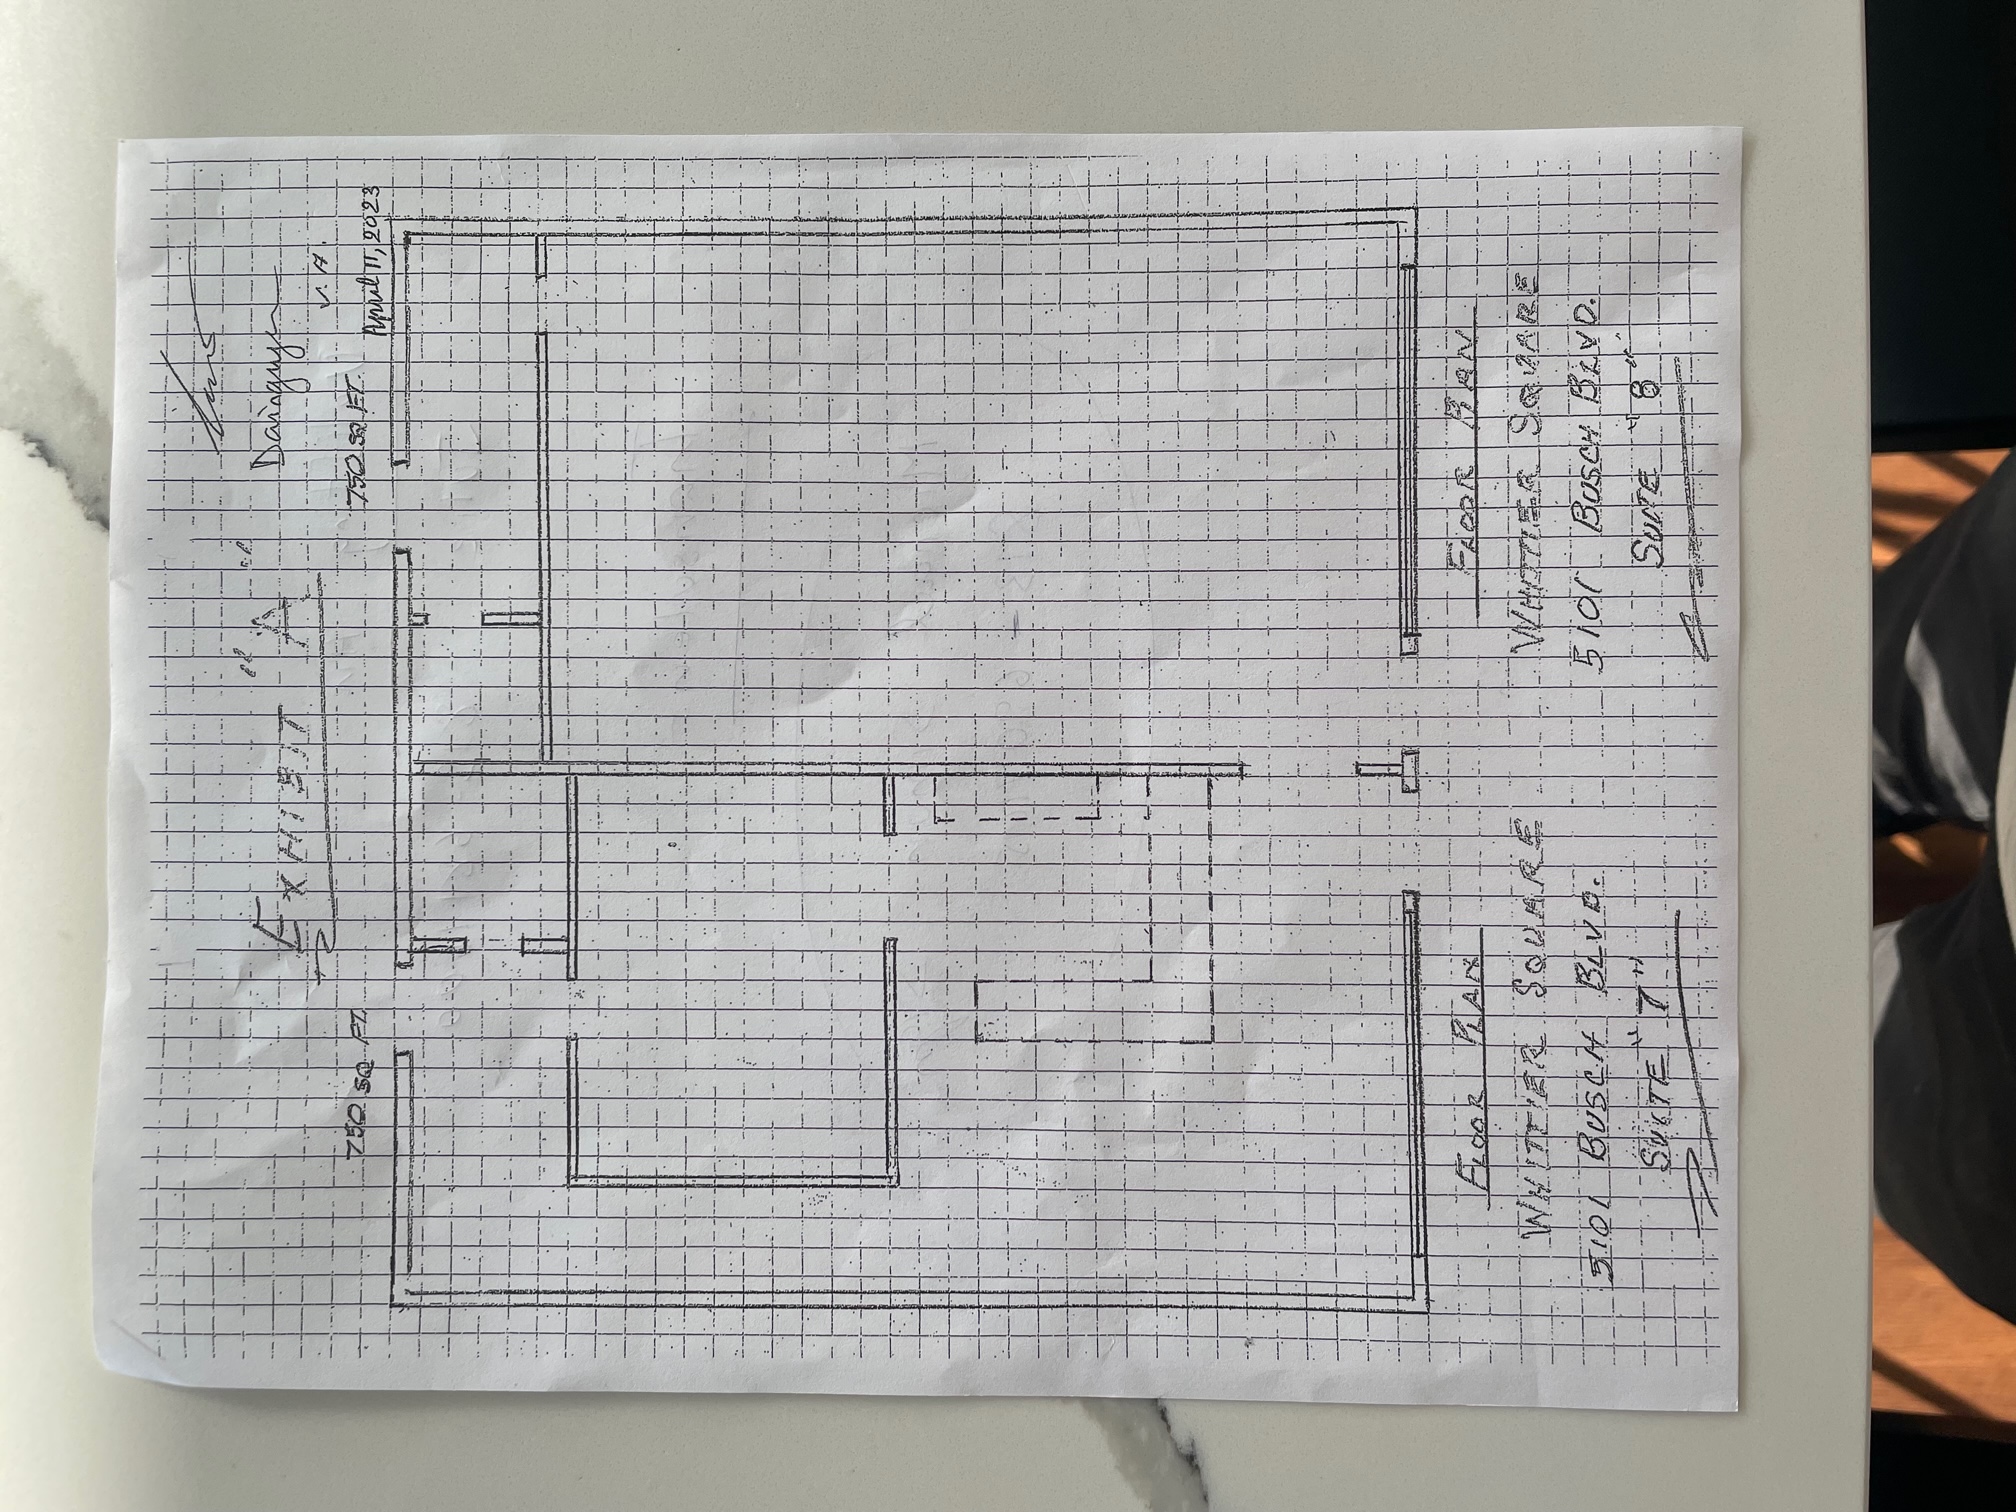 Exhibit "A"
Dainguyen
V. A.
750 SQ FT.
750 SQ FT.
April 11, 2023
FLOOR PLAN
WHITTIER SQUARE
5101 BUSCH BLVD.
SUITE "7"
FLOOR PLAN
WHITTIER SQUARE
5101 BUSCH BLVD.
SUITE "8"